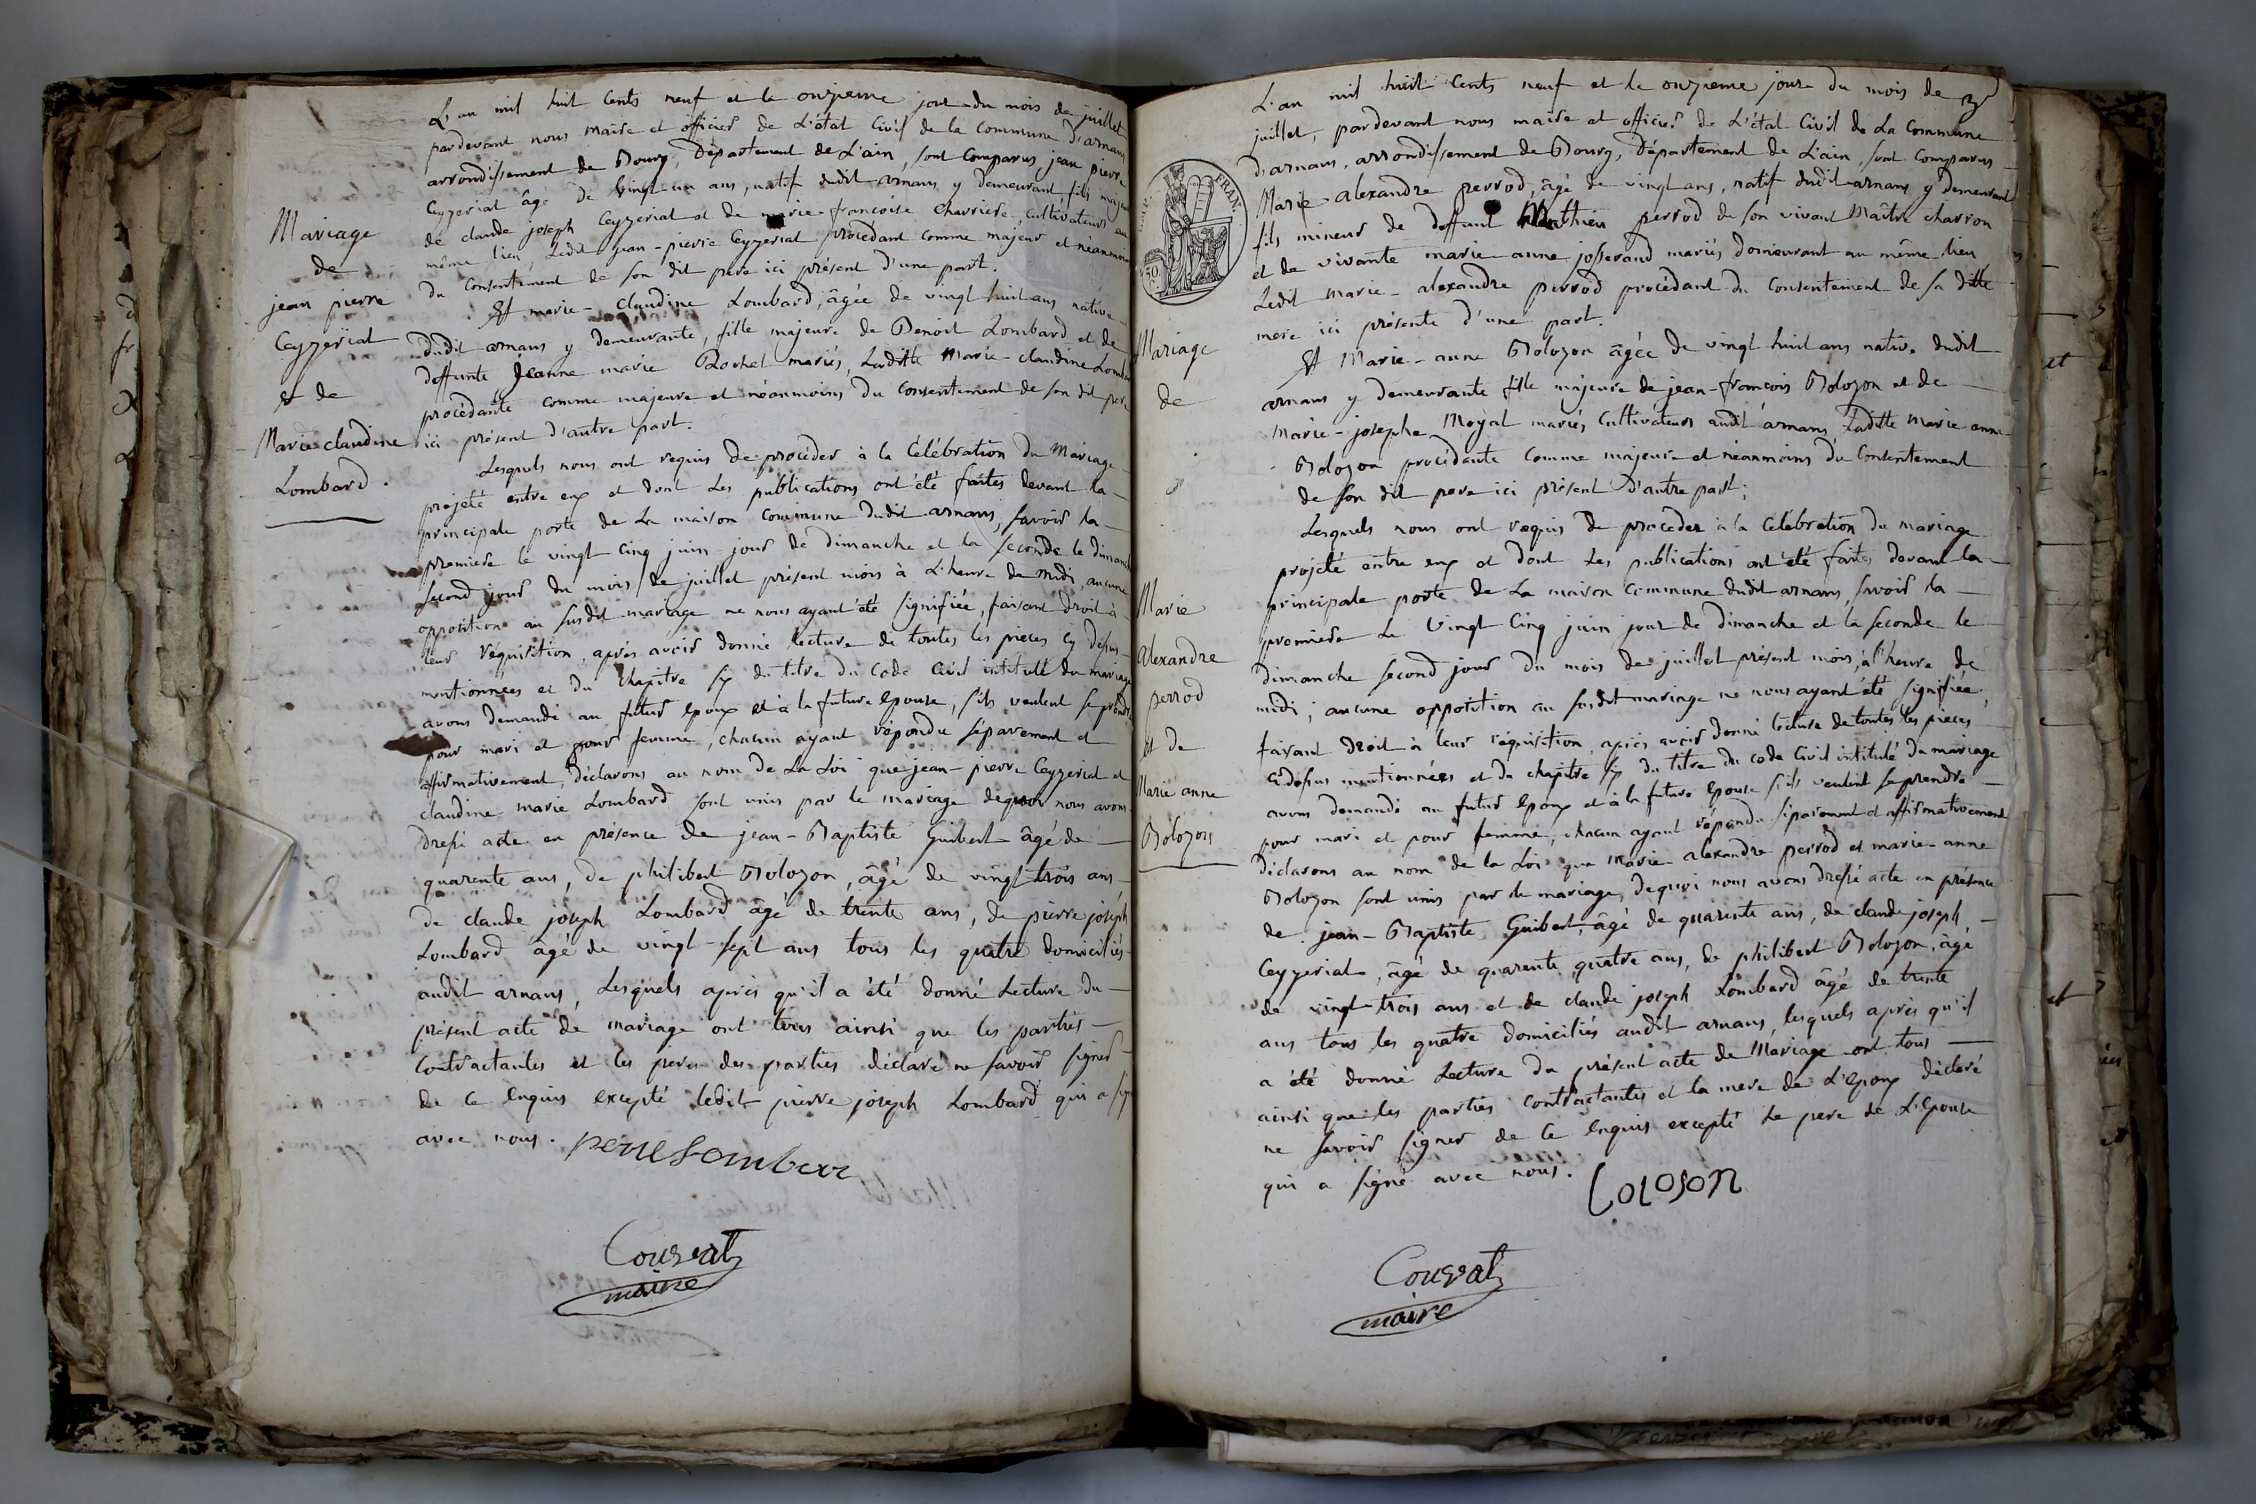 L'an mil huit cents neuf et le onzieme jour du mois de juillet
pardevant nous maire et officier de L'état Civil de la Commune d'arnans
arrondissement de Bourg, Département de L'ain, sont Comparus jean pierre
Ceyzeriat âgé de vingt un ans, natif dudit arnans y demeurant fils majeur
de claude joseph Ceyzeriat et de marie-francoise Charriere, Cultivateurs au
même lieu, Ledit jean-pierre Ceyzeriat procedant comme majeur et néanmoins
du Consentement de son dit pere ici présent d'une part.
Et marie-Claudine Lombard, âgée de vingt huit ans native
dudit arnans y demeurante, fille majeure de Benoit Lombard et de
deffunte Jeanne marie Rochet mariés, Laditte Marie-claudine Lombard
procedante comme majeure et néanmoins du Consentement de son dit pere
ici présent d'autre part.
Lesquels nous ont requis de procéder à la Célébration du Mariage
projetté entre eux et dont Les publications ont été faites devant la
principale porte de La maison Commune dudit arnans, savoir la
premiere le vingt Cinq juin jour de dimanche et la seconde le dimanche
second jour du mois de juillet présent mois à L'heure de midi, aucune
opposition au susdit mariage ne nous ayant été signifiée, faisant droit à
leur réquisition, après avoir donné lecture de toutes les pieces cy dessus
mentionnées et du Chapitre six du titre du Code Civil intitulé du mariage
avons demandé au futur Epoux et à la future Epouse, s'ils veulent se prendre
pour mari et pour femme, chacun ayant répondu séparement et
affirmativement, déclarons au nom de La Loi que jean-pierre Ceyzeriat et
claudine marie Lombard sont unis par le mariage dequoi nous avons
dressé acte en présence de jean-Baptiste Guibert âgé de
quarente ans, de philibert Bolozon, âgé de vingt trois ans
de claude joseph Lombard âgé de trente ans, de pierre joseph
Lombard âgé de vingt-sept ans tous les quatre domiciliés
audit arnans, Lesquels après qu'il a été donné Lecture du
présent acte de mariage ont tous ainsi que les parties
Contractantes et les peres des parties déclaré ne savoir signer
de ce Enquis excepté ledit pierre joseph Lombard qui a signé
avec nous.
Couvat
maire
Mariage
de
jean pierre
Ceyzeriat
et de
Marie claudine
Lombard.
L'an mil huit Cents neuf et le onzieme jour du mois de
juillet, pardevant nous maire et officier de L'état Civil de La Commune
d'arnans, arrondissement de Bourg, Département de L'ain, sont Comparus
Marie-alexandre perrod, âgé de vingt ans, natif dudit arnans y demeurant
fils mineur de deffunt Mathieu perrod de son vivant Maître charron
et de vivante marie-anne josserand mariés demeurant au même lieu
Ledit marie-alexandre perrod procédant du Consentement de sa ditte
mere ici présente d'une part.
Et Marie-anne Bolozon âgée de vingt huit ans native dudit
arnans y demeurante fille majeure de jean-francois Bolozon et de
Marie-josephe Moyat mariés Cultivateurs audit arnans Laditte Marie anne
Bolozon procedante Comme majeure et néanmoins du Consentement
de son dit pere ici présent d'autre part;
Lesquels nous ont requis de proceder à la Célébration du mariage
projeté entre eux et dont Les publications ont été faites devant la
principale porte de La maison Commune dudit arnans, savoir la
premiere Le Vingt Cinq juin jour de dimanche et la seconde le
dimanche second jour du mois de juillet présent mois, à l'heure de
midi; aucune opposition au susdit mariage ne nous ayant été signifiée,
faisant droit à leur réquisition, après avoir donné lecture de toutes les pieces
Cidessus mentionnées et du chapitre six du titre du code Civil intitulé du mariage
avons demandé au futur Epoux et à la future Epouse s'ils veulent se prendre
pour mari et pour femme, chacun ayant répondu séparement et affirmativement
déclarons au nom de la Loi que Marie-alexandre perrod et marie-anne
Bolozon sont unis par le mariage, dequoi nous avons dressé acte en présence
de jean-Baptiste Guibert, âgé de quarente ans, de claude joseph
Ceyzeriat, âgé de quarente quatre ans, de philibert Bolozon, âgé
de vingt trois ans et de claude joseph Lombard âgé de trente
ans tous les quatre domiciliés audit arnans, lesquels après qu'il
a été donné Lecture du présent acte de Mariage ont tous
ainsi que les parties Contractantes et la mere de L'Epoux déclaré
ne savoir signer de Ce Enquis excepté Le pere de L'Epouse
qui a signé avec nous.
Bolozon
Couvat
maire
FRAN.
Mariage
de
Marie
Alexandre
perrod
et de
Marie anne
Bolozon